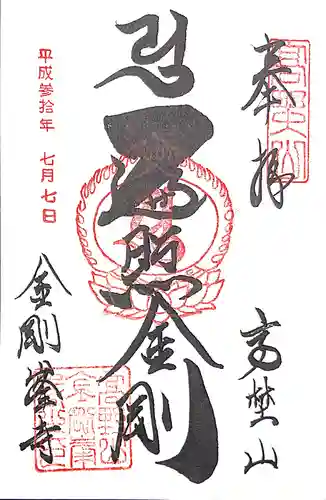 奉拝
高埜山
遍照金剛
平成参拾年 七月七日
金剛峯寺